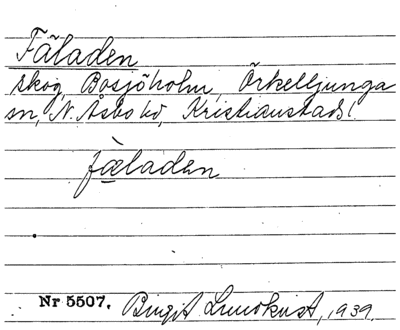 Fäladen
skog, Bosjöholm, Örkelljunga
sn, N. Åsbo hd, Kristianstads l.
fæ̀ladən
Nr 5507. Birgit Lundkvist, 1939.